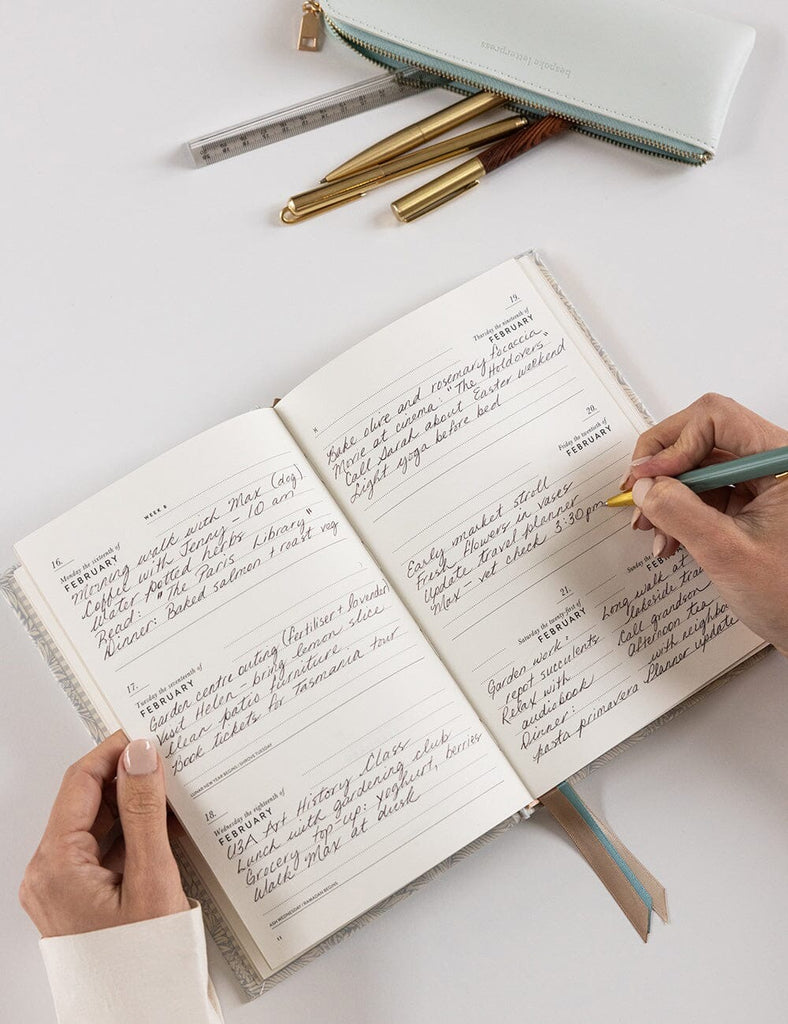 bespoke letterpress
WEEK 8
16.
Monday the sixteenth of
FEBRUARY
Morning walk with Max (dog)
Coffee with Jenny - 10 am
Water potted herbs
Read: "The Paris Library"
Dinner: Baked salmon + roast veg
17.
Tuesday the seventeenth of
FEBRUARY
Garden centre outing (fertiliser + lavender)
Visit Helen - bring lemon slice
Clean patio furniture
Book tickets for Tasmania tour
LUNAR NEW YEAR BEGINS / SHROVE TUESDAY
18.
Wednesday the eighteenth of
FEBRUARY
U3A Art History Class
Lunch with gardening club
Grocery top-up: yoghurt, berries
Walk Max at dusk
ASH WEDNESDAY / RAMADAN BEGINS
19.
Thursday the nineteenth of
FEBRUARY
Bake olive and rosemary focaccia
Movie at cinema: "The Holdovers"
Call Sarah about Easter weekend
Light yoga before bed
20.
Friday the twentieth of
FEBRUARY
Early market stroll
Fresh flowers in vases
Update travel planner
Max - vet check 3:30pm
21.
Saturday the twenty-first of
FEBRUARY
Garden work:
repot succulents
Relax with
audiobook
Dinner:
pasta primavera
Sunday the
FEBRUARY
Long walk at
lakeside
Call grandson
Afternoon tea
with
Planner update